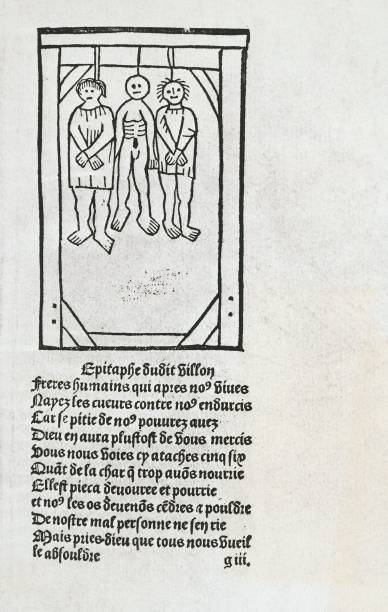 Epitaphe dudit villon
Freres humains qui apres noꝰ viues
Nayez les cueurs contre noꝰ endurcis
Car se pitie de noꝰ pouurez auez
Dieu en aura plustost de vous mercis
Vous nous voies cy ataches cinq six
Quāt de la char q̄ trop auōs nourrie
Ellest pieca deuouree et pourrie
et noꝰ les os deuenōs cēdres a pouldre
De nostre mal personne ne sen rie
Mais pries dieu que tous nous vueil
le absouldre
g iii.